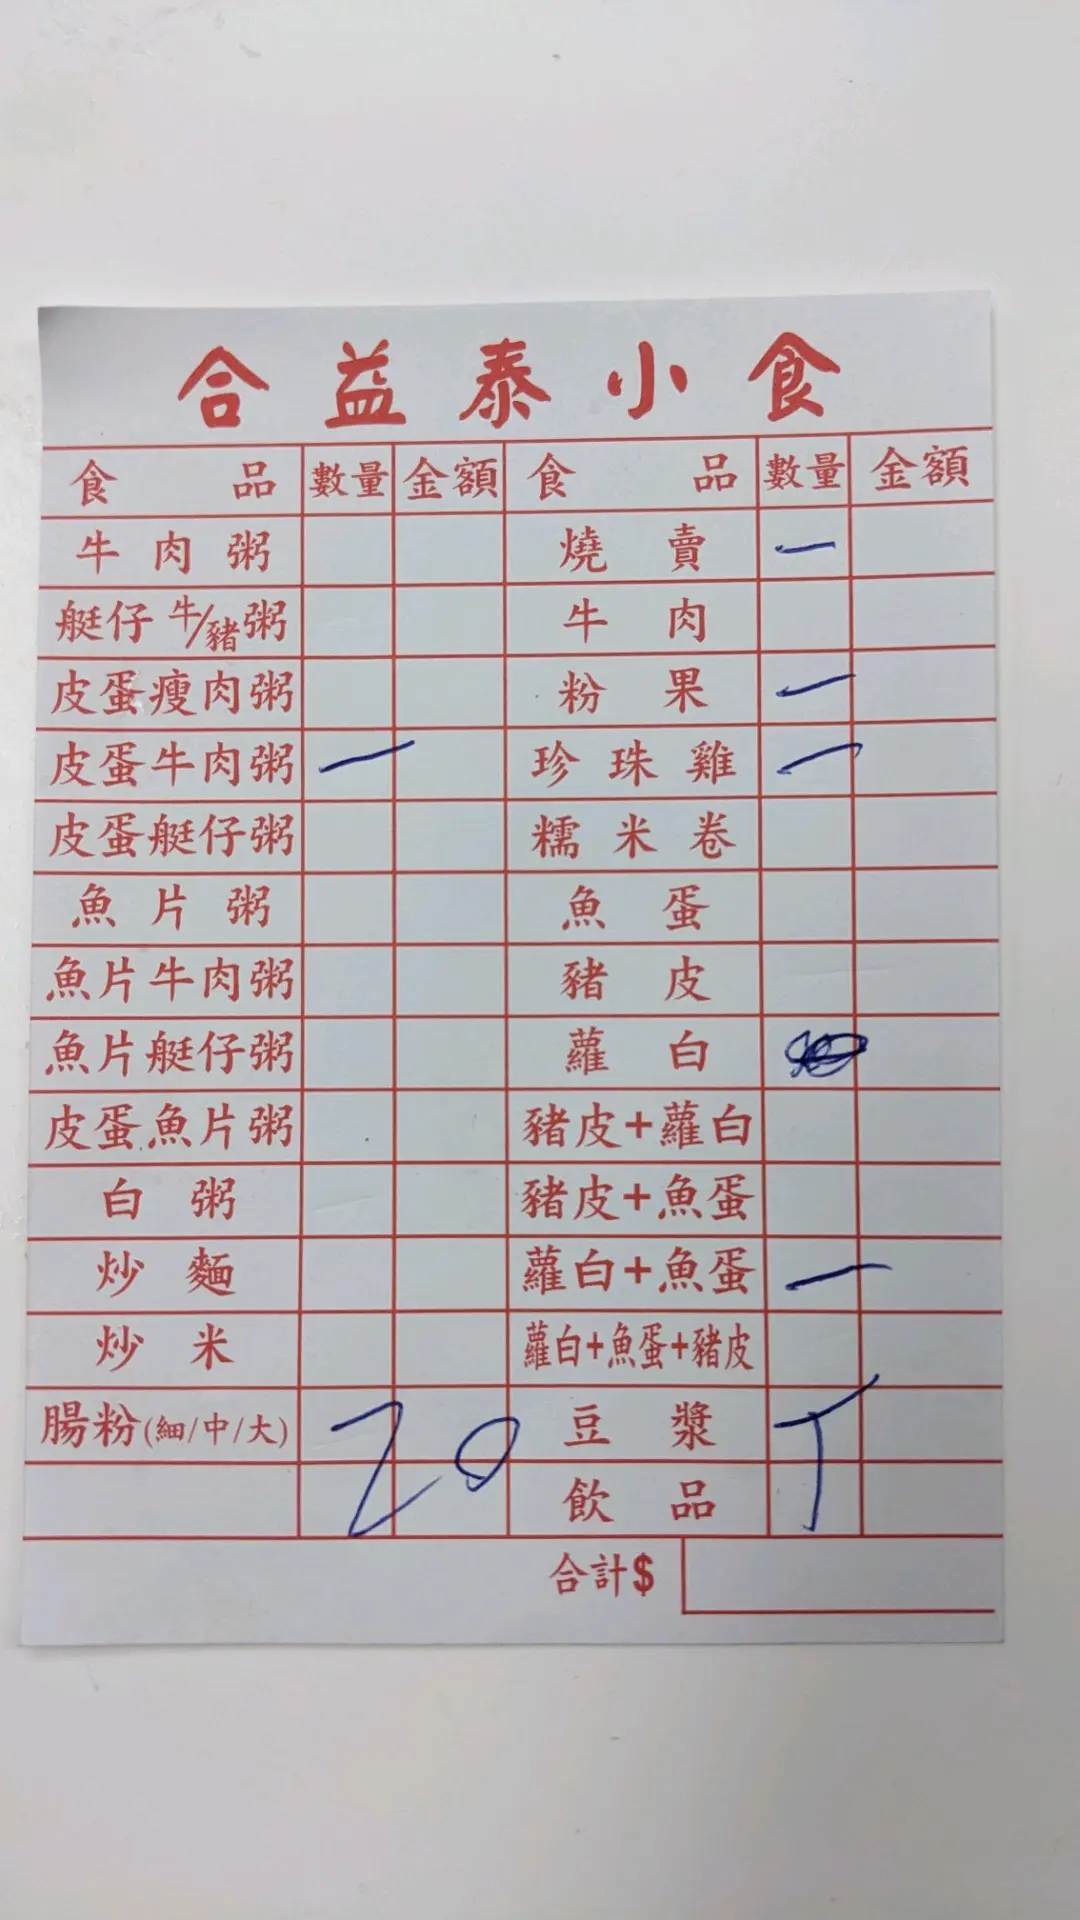 合益泰小食
食品 數量 金額 食品 數量 金額
牛肉粥 燒賣 一
艇仔牛/豬粥 牛肉
皮蛋瘦肉粥 粉果 一
皮蛋牛肉粥 一 珍珠雞 一
皮蛋艇仔粥 糯米卷
魚片粥 魚蛋
魚片牛肉粥 豬皮
魚片艇仔粥 蘿白
皮蛋魚片粥 豬皮+蘿白
白粥 豬皮+魚蛋
炒麵 蘿白+魚蛋 一
炒米 蘿白+魚蛋+豬皮
腸粉(細/中/大) 20 豆漿 T
飲品
合計$